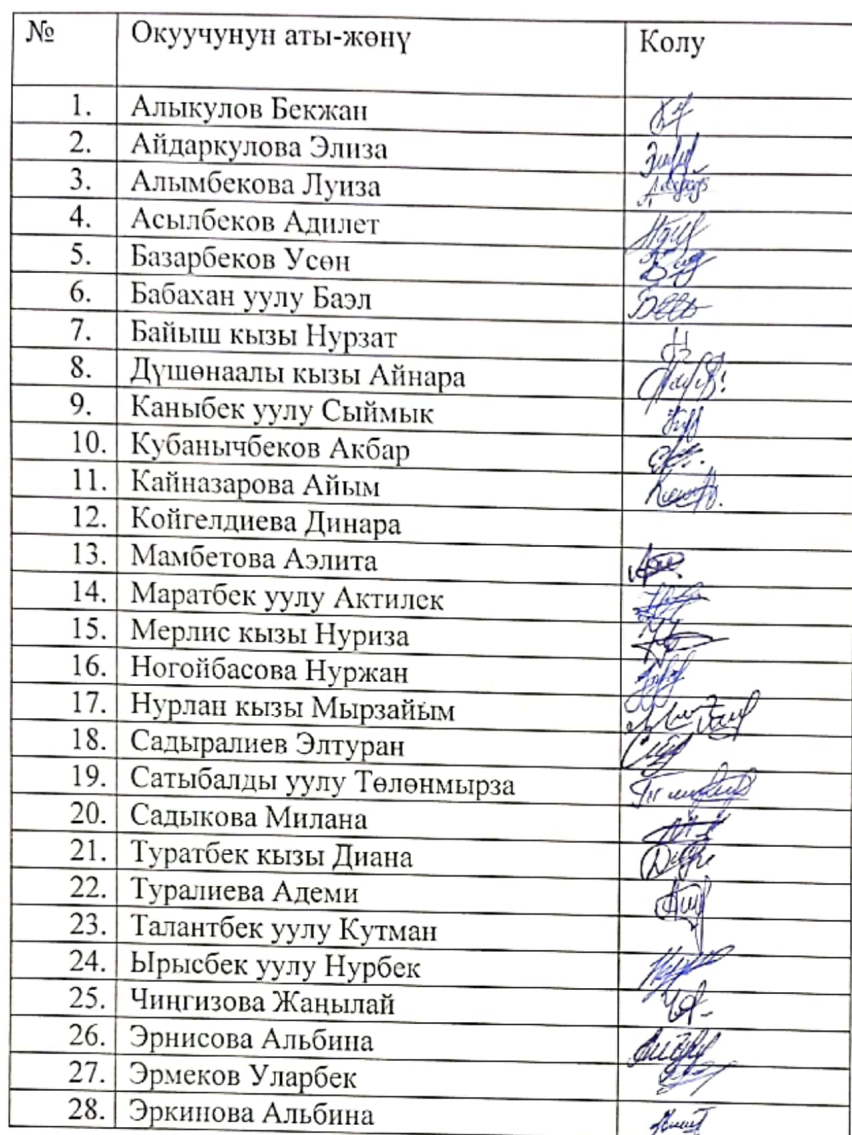 № Окуучунун аты-жөнү Колу
1. Алыкулов Бекжан
2. Айдаркулова Элиза
3. Алымбекова Луиза
4. Асылбеков Адилет
5. Базарбеков Усөн
6. Бабахан уулу Баэл
7. Байыш кызы Нурзат
8. Дүшөнаалы кызы Айнара
9. Каныбек уулу Сыймык
10. Кубанычбеков Акбар
11. Кайназарова Айым
12. Койгелдиева Динара
13. Мамбетова Аэлита
14. Маратбек уулу Актилек
15. Мерлис кызы Нуриза
16. Ногойбасова Нуржан
17. Нурлан кызы Мырзайым
18. Садыралиев Элтуран
19. Сатыбалды уулу Төлөнмырза
20. Садыкова Милана
21. Туратбек кызы Диана
22. Туралиева Адеми
23. Талантбек уулу Кутман
24. Ырысбек уулу Нурбек
25. Чиңгизова Жаңылай
26. Эрнисова Альбина
27. Эрмеков Уларбек
28. Эркинова Альбина